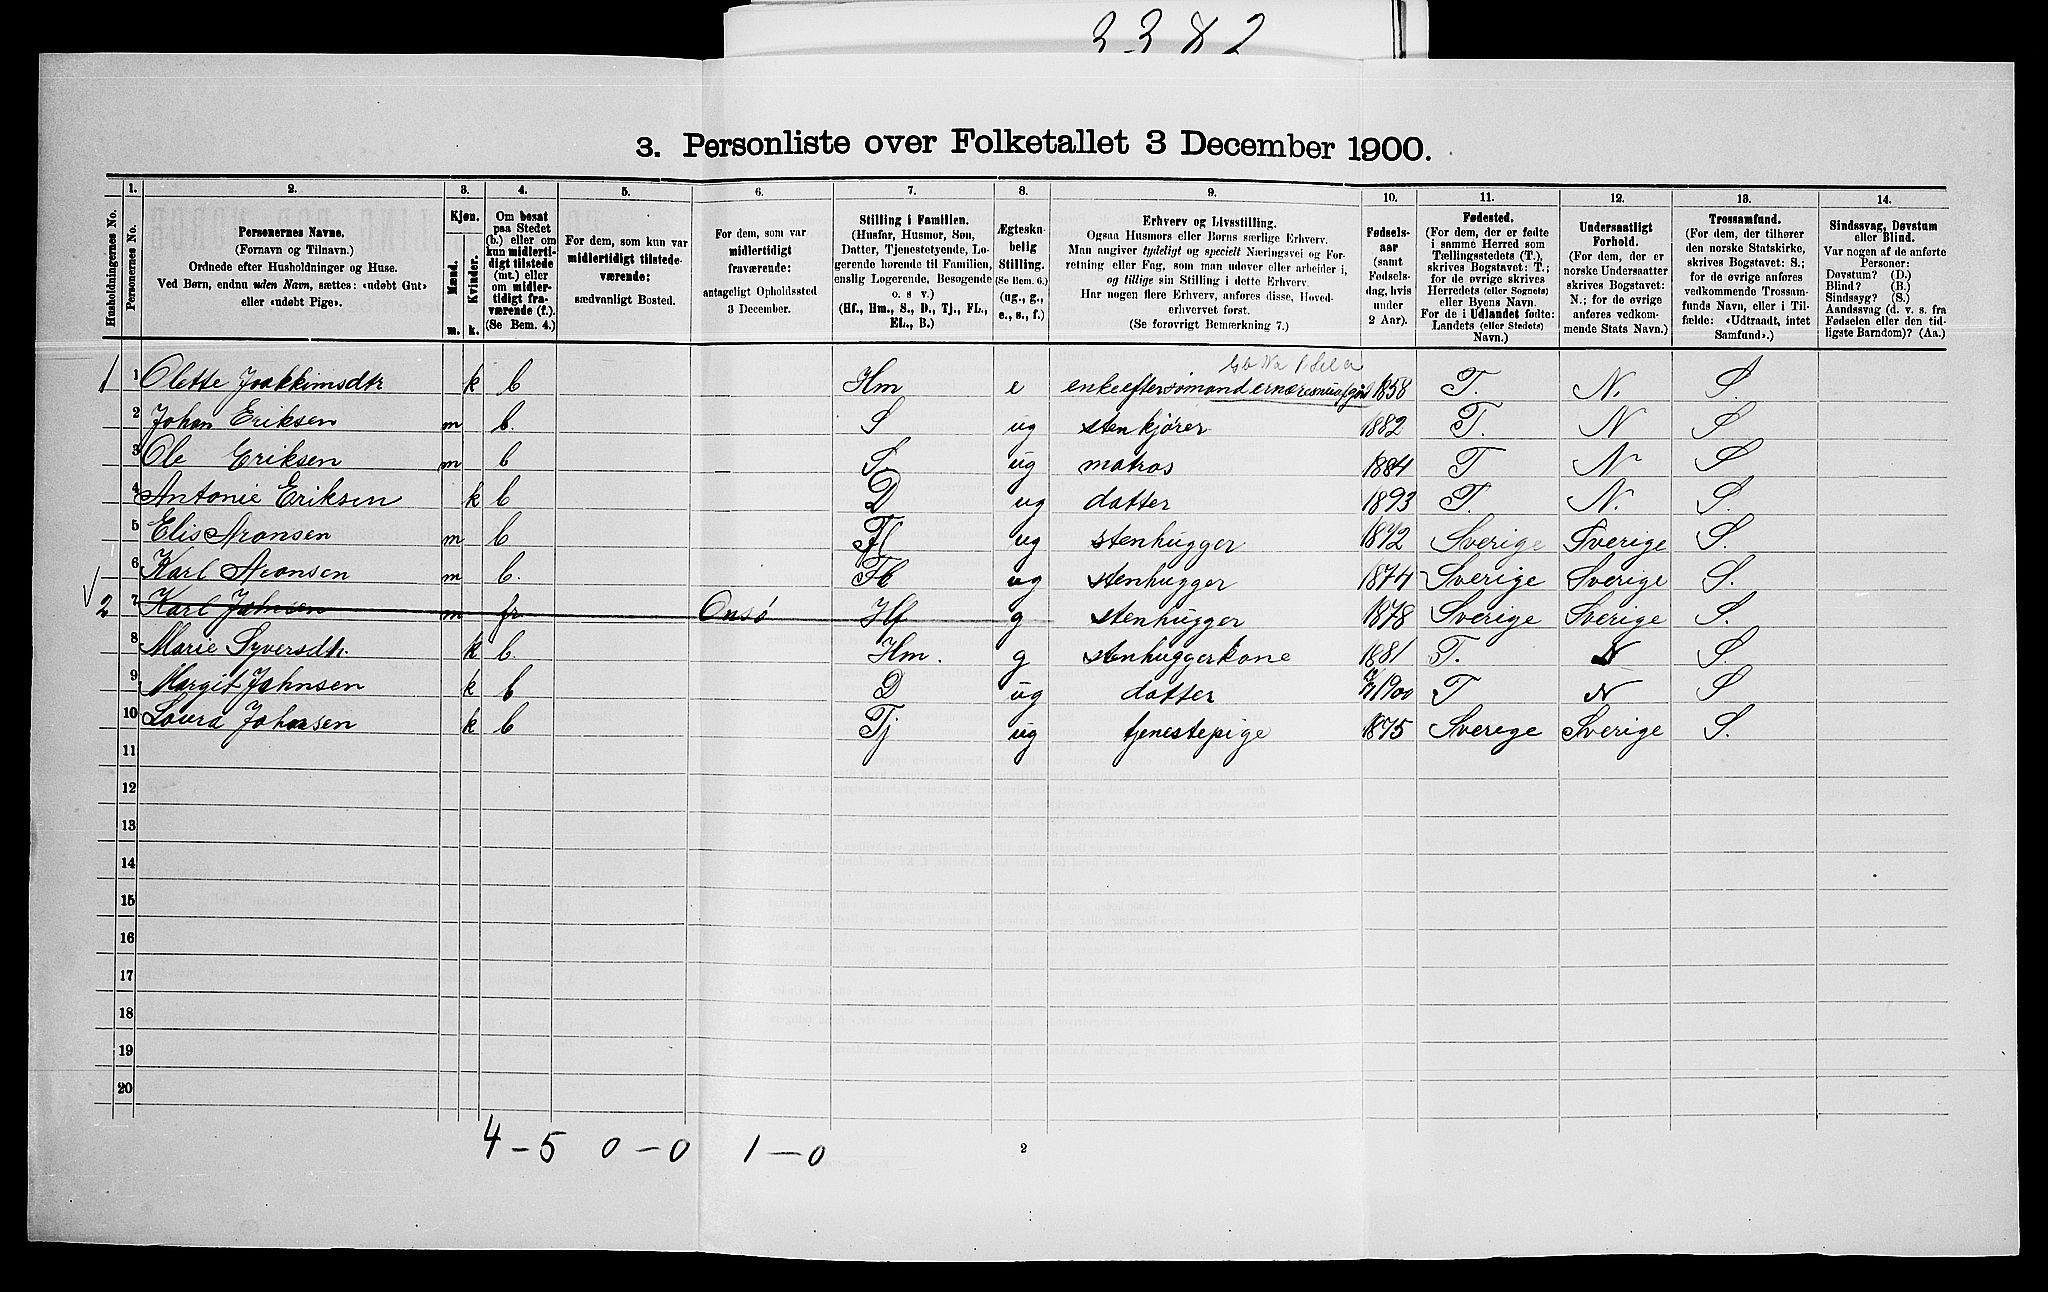 3382
3. Personliste over Folketallet 3 December 1900.
1. 2. 3. 4. 5. 6. 7. 8. 9. 10. 11. 12. 13. 14.
Husholdningernes No.
Personernes No.
Personernes Navne.
(Fornavn og Tilnavn.)
Ordnede efter Husholdninger og Huse.
Ved Børn, endnu uden Navn, sættes: «udøbt Gut»
eller «udøbt Pige».
Kjøn.
Mænd. Kvinder.
m. k.
Om bosat
paa Stedet
(b.) eller om
kun midlerti-
digt tilstede
(mt.) eller
om midler-
tidigt fra-
værende (f.).
(Se Bem. 4.)
For dem, som kun var
midlertidigt tilstede-
værende:
sædvanligt Bosted.
For dem, som var
midlertidigt
fraværende:
antageligt Opholdssted
3 December.
Stilling i Familien.
(Husfar, Husmor, Søn,
Datter, Tjenestetyende, Lo-
gerende hørende til Familien,
enslig Logerende, Besøgende
o. s v.)
(Hf., Hm., S., D., Tj., FL.,
EL., B.)
Ægteska-
belig
Stilling.
(Se Bem. 6.)
(ug., g.,
e., s., f.)
Erhverv og Livsstilling.
Ogsaa Husmors eller Børns særlige Erhverv.
Man angiver tydeligt og specielt Næringsvei og For-
retning eller Fag, som man udøver eller arbeider i,
og tillige sin Stilling i dette Erhverv.
Har nogen flere Erhverv, anføres disse, Hoved-
erhvervet først.
(Se forøvrigt Bemerkning 7.)
Fødsels-
aar
(samt
Fødsels-
dag, hvis
under
2 Aar).
Fødested.
(For dem, der er fødte
i samme Herred som
Tællingsstedets (T.),
skrives Bogstavet: T.;
for de øvrige skrives
Herredets (eller Sognets)
eller Byens Navn.
For de i Udlandet fødte:
Landets (eller Stedets)
Navn.)
Undersaatligt
Forhold.
(For dem, der er
norske Undersaatter
skrives Bogstavet:
N.; for de øvrige
anføres vedkom-
mende Stats Navn.)
Trossamfund.
(For dem, der tilhører
den norske Statskirke,
skrives Bogstavet: S.;
for de øvrige anføres
vedkommende Trossam-
funds Navn, eller i Til-
fælde: «Udtraadt, intet
Samfund».)
Sindssvag, Døvstum
eller Blind.
Var nogen af de anførte
Personer:
Døvstum? (D.)
Blind? (B.)
Sindssyg? (S.)
Aandssvag (d. v. s. fra
Fødselen eller den tid-
ligste Barndom)? (Aa.)
1 1 Olette Joakkimsdtr k b Hm e enke efter sømand 1858 T. N. S.
2 Johan Eriksen m b. S ug stenkjører 1882 T. N S
3 Ole Eriksen m b S. ug matros 1884 T N S
4 Antonie Eriksen k b D ug datter 1893 T. N. S.
5 Elis Aronsen m b Fl ug stenhugger 1872 Sverige Sverige S.
6 Karl Aronsen m b. Fl ug stenhugger 1874 Sverige Sverige S.
2 7 Karl Johnsen m fr Onsø Hf g stenhugger 1878 Sverige Sverige S.
8 Marie Syversdtr. k b. Hm. g stenhuggerkone 1881 T. N S.
9 Margit Johnsen k b D ug datter 1900 T N S
10 Laura Johansen k b Tj ug tjenestepige 1875 Sverige Sverige S.
11
12
13
14
15
16
17
18
19
20
4 – 5 0 – 0 1 – 0
2